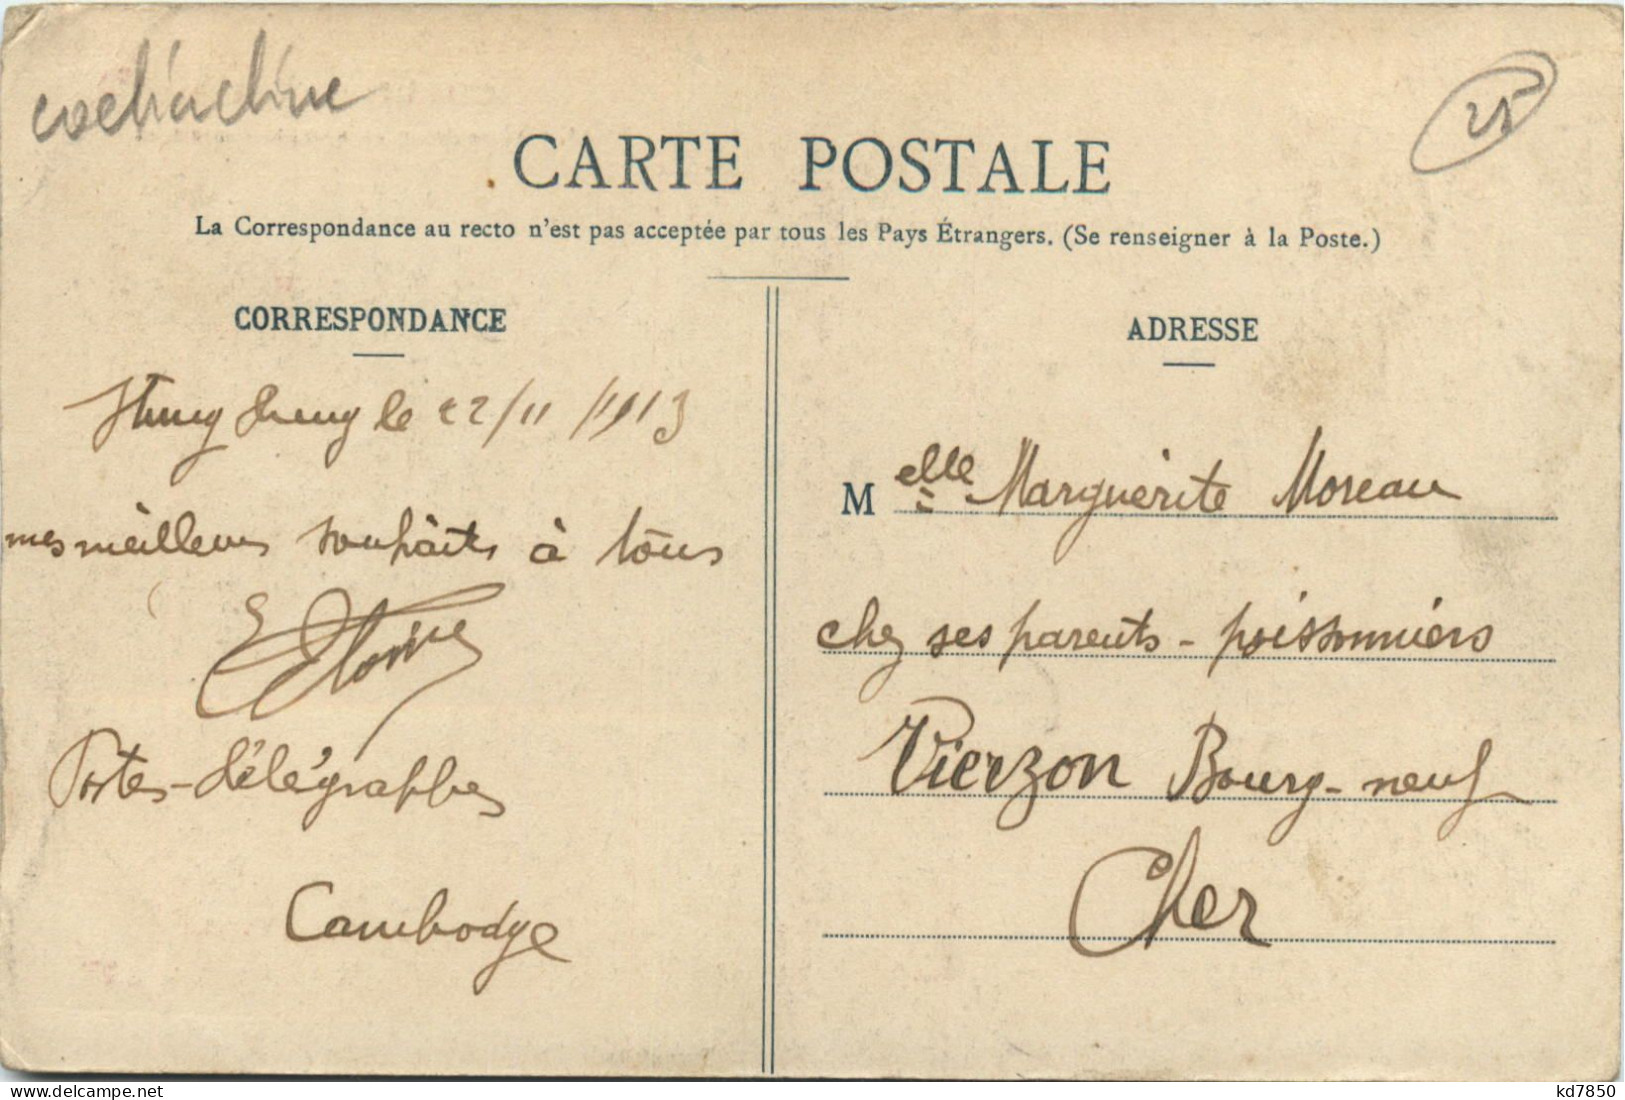 cochinchine
25
CARTE POSTALE
La Correspondance au recto n'est pas acceptée par tous les Pays Étrangers. (Se renseigner à la Poste.)
CORRESPONDANCE
Stung Streng le 22/11/1913
mes meilleurs souhaits à tous
Postes-Télégraphes
Cambodge
ADRESSE
Melle Marguerite Moreau
chez ses parents - poissonniers
Vierzon Bourg-neuf
Cher
kd7850